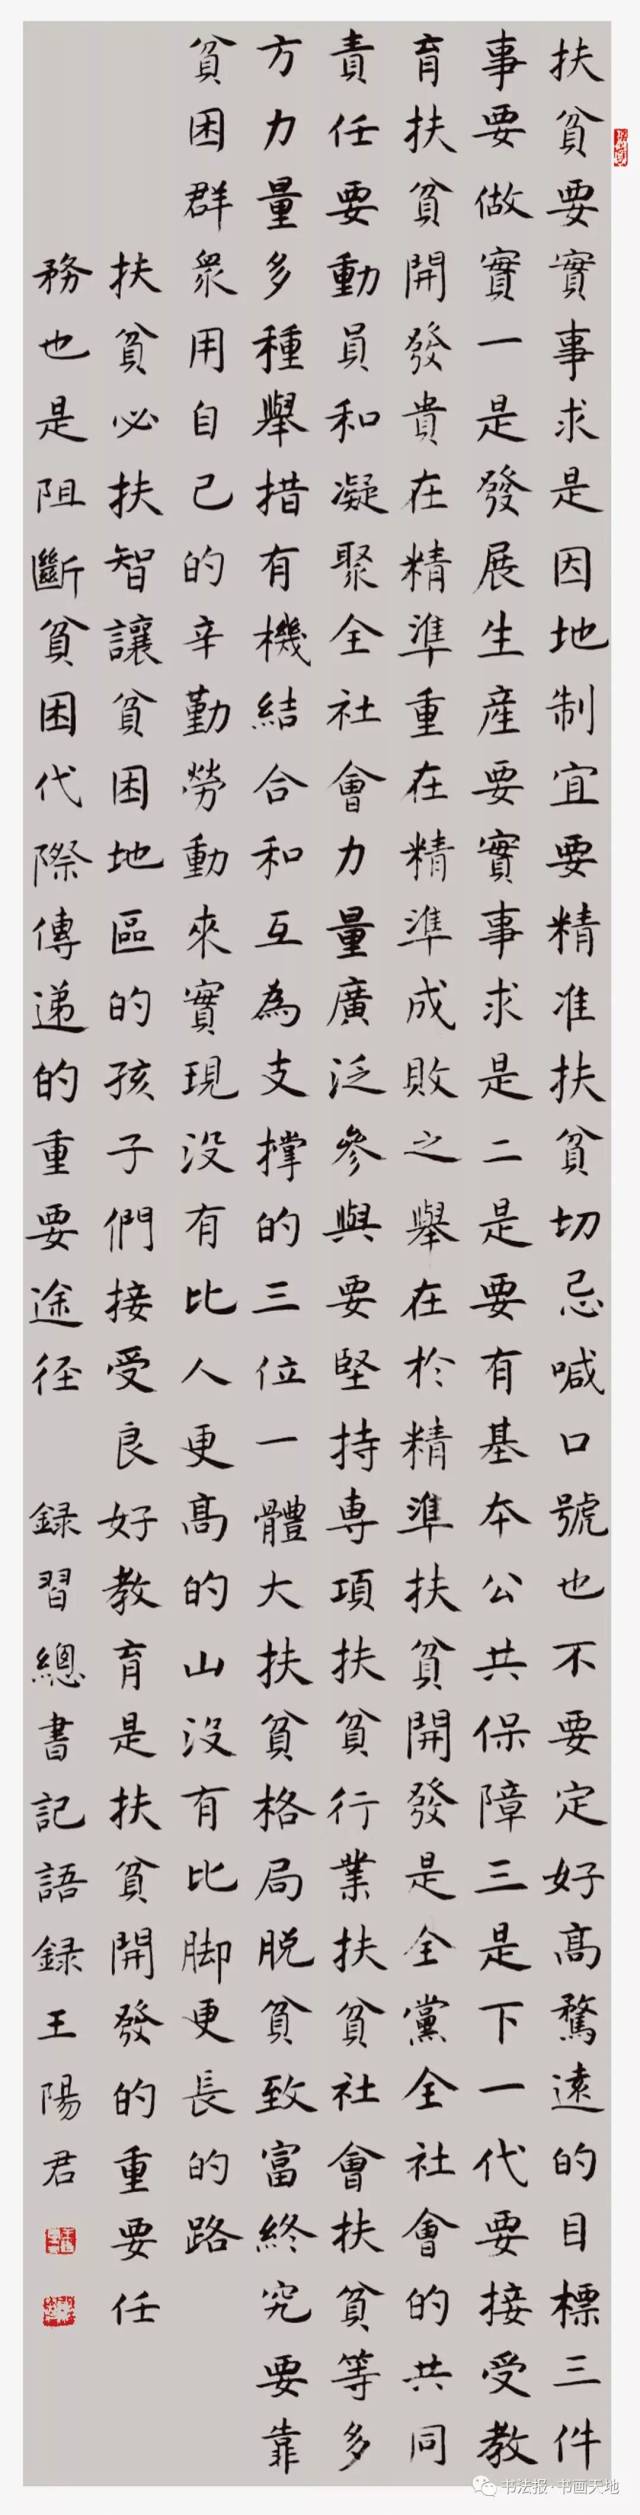 扶貧要實事求是因地制宜要精准扶貧切忌喊口號也不要定好高騖遠的目標三件
事要做實一是發展生産要實事求是二是要有基本公共保障三是下一代要接受教
育扶貧開發貴在精準重在精準成敗之舉在於精準扶貧開發是全黨全社會的共同
責任要動員和凝聚全社會力量廣泛參與要堅持専項扶貧行業扶貧社會扶貧等多
方力量多種舉措有機結合和互為支撐的三位一體大扶貧格局脱貧致富終究要靠
貧困群衆用自己的辛勤勞動來實現没有比人更高的山没有比脚更長的路
扶貧必扶智讓貧困地區的孩子們接受良好教育是扶貧開發的重要任
務也是阻斷貧困代際傳递的重要途径 録習總書記語録王陽君
书法报·书画天地